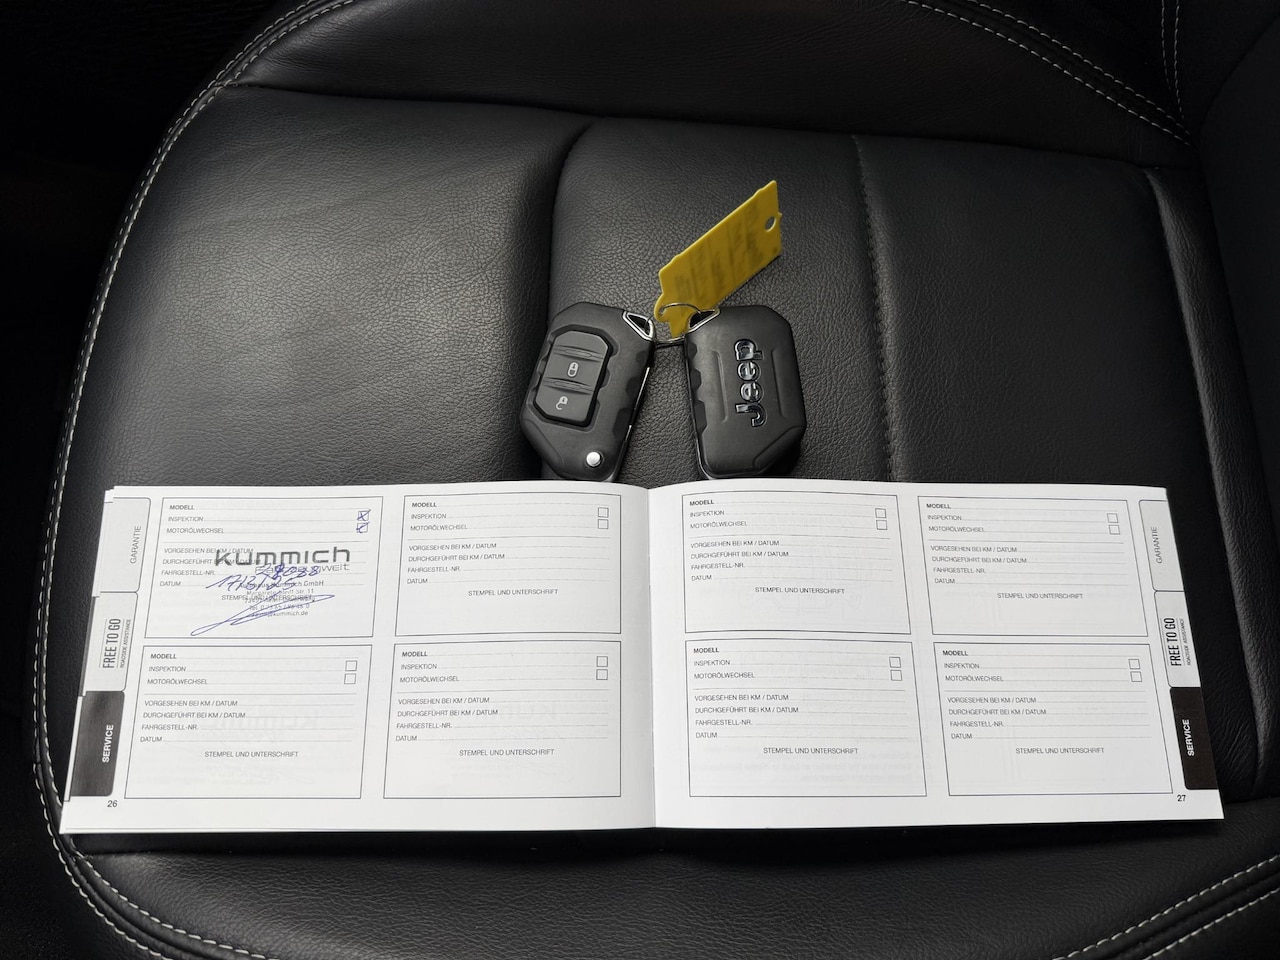 Jeep
GARANTIE
FREE TO GO
ROADSIDE ASSISTANCE
SERVICE
26
MODELL
INSPEKTION
MOTORÖLWECHSEL
VORGESEHEN BEI KM / DATUM
DURCHGEFÜHRT BEI KM
FAHRGESTELL-NR.
DATUM
STEMPEL UND
kummich
GmbH
MODELL
INSPEKTION
MOTORÖLWECHSEL
VORGESEHEN BEI KM / DATUM
DURCHGEFÜHRT BEI KM / DATUM
FAHRGESTELL-NR.
DATUM
STEMPEL UND UNTERSCHRIFT
MODELL
INSPEKTION
MOTORÖLWECHSEL
VORGESEHEN BEI KM / DATUM
DURCHGEFÜHRT BEI KM / DATUM
FAHRGESTELL-NR.
DATUM
STEMPEL UND UNTERSCHRIFT
MODELL
INSPEKTION
MOTORÖLWECHSEL
VORGESEHEN BEI KM / DATUM
DURCHGEFÜHRT BEI KM / DATUM
FAHRGESTELL-NR.
DATUM
STEMPEL UND UNTERSCHRIFT
MODELL
INSPEKTION
MOTORÖLWECHSEL
VORGESEHEN BEI KM / DATUM
DURCHGEFÜHRT BEI KM / DATUM
FAHRGESTELL-NR.
DATUM
STEMPEL UND UNTERSCHRIFT
MODELL
INSPEKTION
MOTORÖLWECHSEL
VORGESEHEN BEI KM / DATUM
DURCHGEFÜHRT BEI KM / DATUM
FAHRGESTELL-NR.
DATUM
STEMPEL UND UNTERSCHRIFT
MODELL
INSPEKTION
MOTORÖLWECHSEL
VORGESEHEN BEI KM / DATUM
DURCHGEFÜHRT BEI KM / DATUM
FAHRGESTELL-NR.
DATUM
STEMPEL UND UNTERSCHRIFT
MODELL
INSPEKTION
MOTORÖLWECHSEL
VORGESEHEN BEI KM / DATUM
DURCHGEFÜHRT BEI KM / DATUM
FAHRGESTELL-NR.
DATUM
STEMPEL UND UNTERSCHRIFT
GARANTIE
FREE TO GO
ROADSIDE ASSISTANCE
SERVICE
27